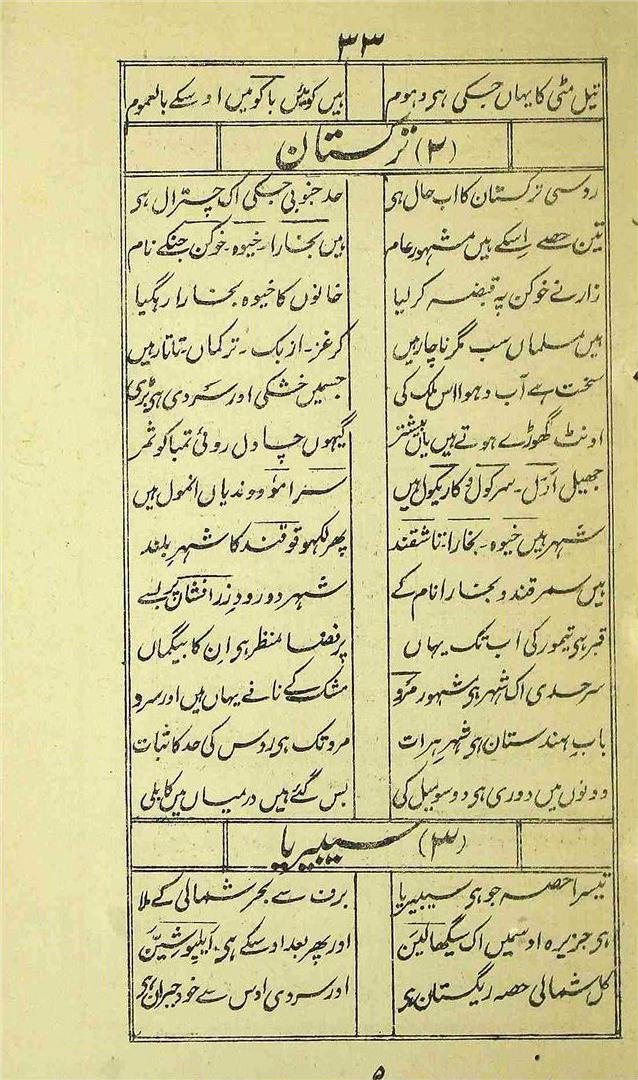 ۳۳
تیل مٹی کا یہاں جسکی ہی دہوم ہیں کوئیں باکو میں اوسکے بالعموم
(۲) ترکستان
روسی ترکستان کا اب حال ہی حد جنوبی جسکی اک چترال ہی
تین حصے اِسکے ہیں مشہور عام ہیں بخارا۔ خیوہ۔ خوکن جنکے نام
زار نے خوکن پہ قبضہ کر لیا خانوں کا خیوہ بخارا رہگیا
ہیں مسلماں سب مگر ناچار ہیں کرغز۔ ازبک۔ ترکماں۔ تاتار ہیں
سخت ہے آب و ہوا اس ملک کی جسمیں خشکی اور سردی ہی بڑی
اونٹ گھوڑے ہوتے ہیں یاں بیشتر گیہوں چاول روئی تمباکو ثمر
جھیل ارَل۔ سرکول و کاریکول ہیں سرامو دو ندیاں انمول ہیں
شہر ہیں خیوہ۔ بخارا۔ تاشقند پھر لکھو قوقند کا شہرِ بلند
ہیں سمرقند و بخارا نام کے شہر دو رودِ زرافشاں پر بسے
قبر ہی تیمور کی اب تک یہاں پر فضا منظر ہی اِن کا بیگماں
سرحدی اک شہر ہی مشہور مَرو مشک کے نافے یہاں ہیں اور سرو
بابِ ہندستان ہی شہرِ ہرات مرو تک ہی روس کی حد کا ثبات
دونوں میں دوری ہی دو سو میل کی بس گئے ہیں درمیاں میں کابلی
(۳) سیبیریا
تیسرا حصہ جو ہی سیبیریا برف سے بحر شمالی کے ملا
ہی جزیرہ اوسمیں اک سیگھالین اور پھر بعد اوسکے ہی
کل شمالی حصہ ریگستان ہی اور سردی اوس سے خود حیران ہی
۵